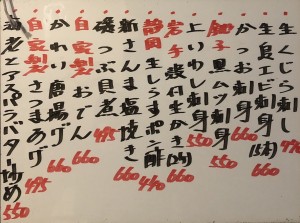 生くじら刺し 770
かつお刺し 660
生島エビ刺身(5本) 770
銚子黒ムツ刺身 550
上いわし刺身 550
岩手殻付生かき(2ヶ) 660
静岡生しらすポン酢 440
新さんま塩焼き 660
磯つぶ貝煮 495
自家製おでん 660
かわり唐揚げ 660
自家製さつまあげ 495
海老とアスパラバター炒め 550